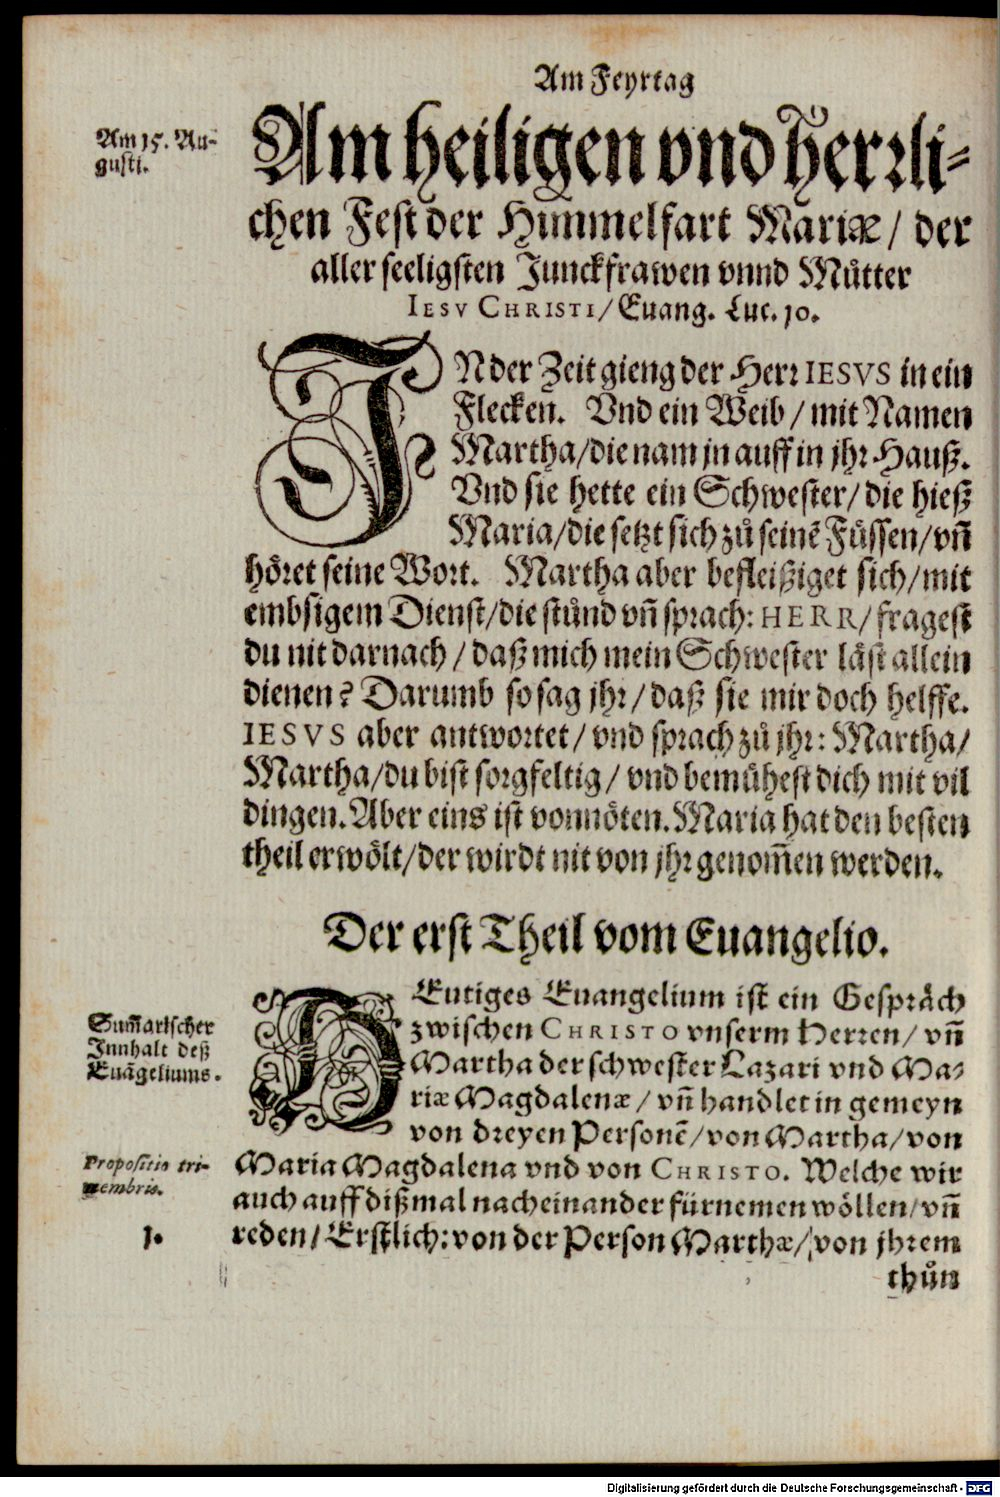 Am Feyrtag
Am 15. Au-
gusti.
Am heiligen vnd Herrli-
chen Fest der Himmelfart Mariæ / der
aller seeligsten Junckfrawen vnnd Můtter
IESV CHRISTI / Euang. Luc. 10.
IN der Zeit gieng der Herr IESVS in ein
Flecken. Vnd ein Weib / mit Namen
Martha / die nam jn auff in jhr Hauß.
Vnd sie hette ein Schwester / die hieß
Maria / die setzt sich zů seinẽ Füssen / vñ
höret seine Wort. Martha aber befleißiget sich / mit
embsigem Dienst / die stůnd vñ sprach: HERR / fragest
du nit darnach / daß mich mein Schwester läst allein
dienen? Darumb so sag jhr / daß sie mir doch helffe.
IESVS aber antwortet / vnd sprach zů jhr: Martha /
Martha / du bist sorgfeltig / vnd bemühest dich mit vil
dingen. Aber eins ist vonnöten. Maria hat den besten
theil erwölt / der wirdt nit von jhr genom̃en werden.
Der erst Theil vom Euangelio.
Sum̃arischer
Innhalt deß
Euãgeliums.
HEutiges Euangelium ist ein Gespräch
zwischen CHRISTO vnserm Herren / vñ
Martha der schwester Lazari vnd Ma-
riæ Magdalenæ / vñ handlet in gemeyn
von dreyen Personẽ / von Martha / von
Propositio tri-
membris.
Maria Magdalena vnd von CHRISTO. Welche wir
auch auff dißmal nacheinander fürnemen wöllen / vñ
1.
reden / Erstlich: von der Person Marthæ / von jhrem
thůn
Digitalisierung gefördert durch die Deutsche Forschungsgemeinschaft - DFG